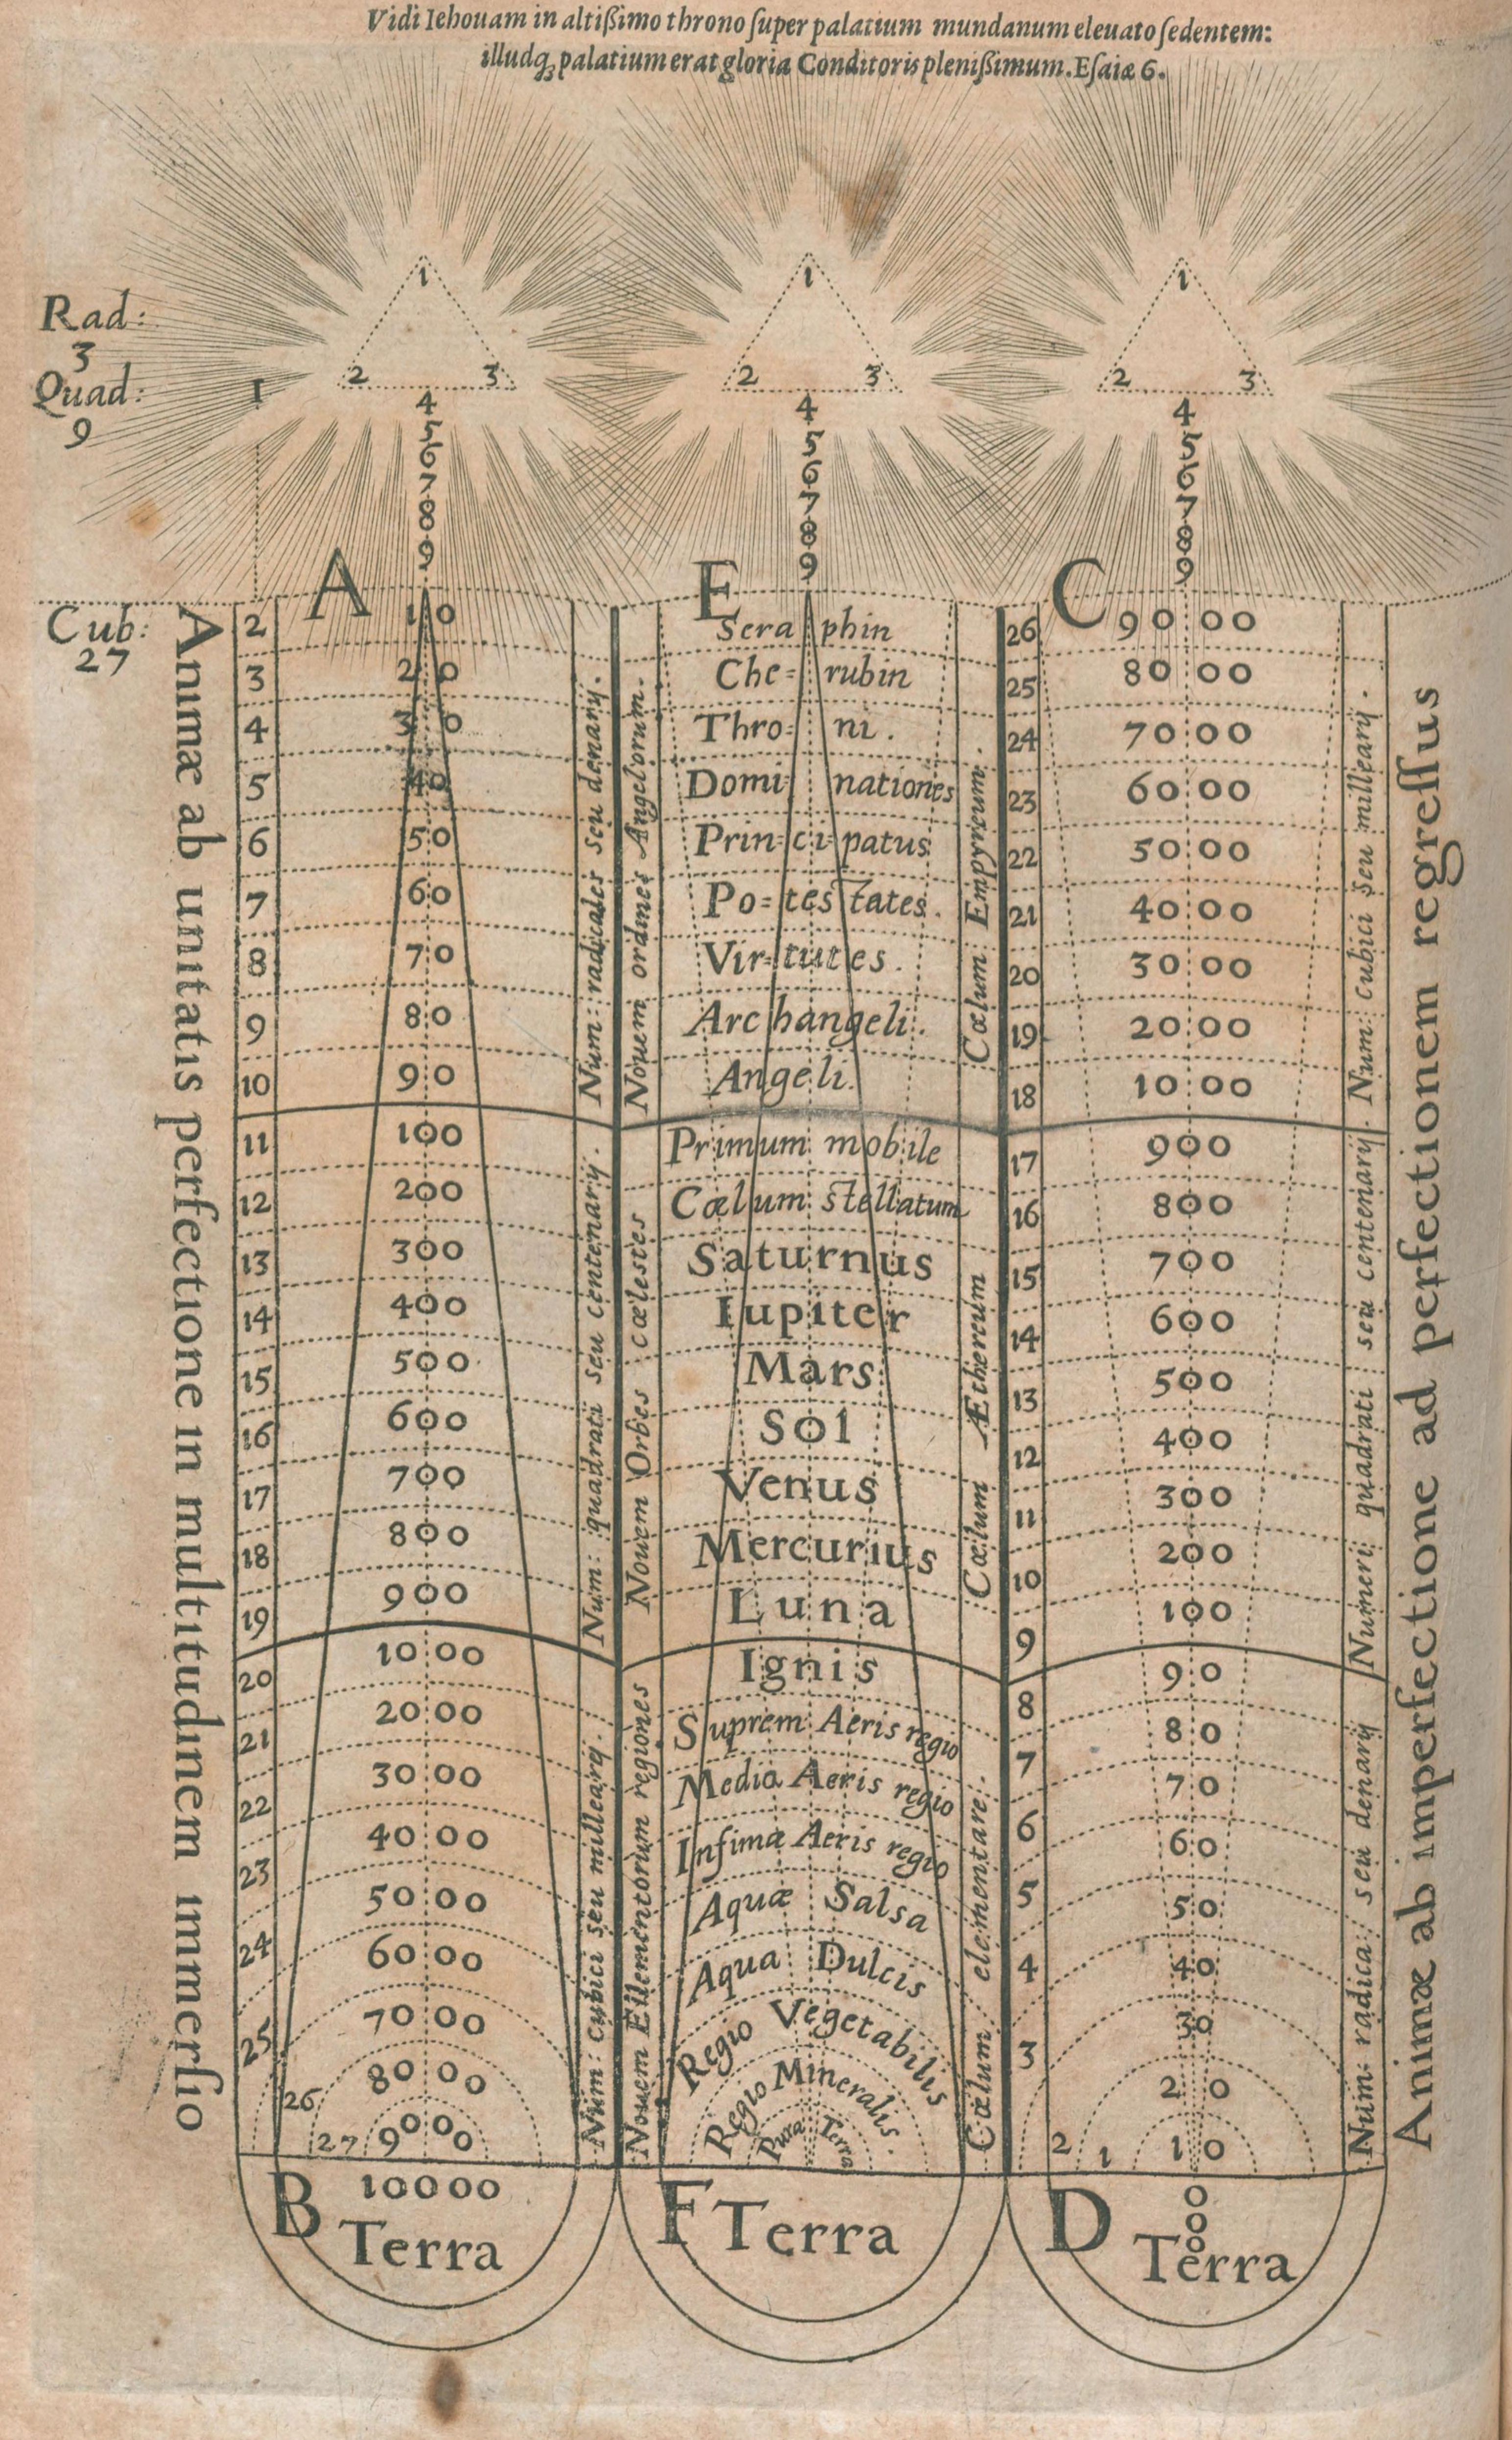 Vidi Iehouam in altiſsimo throno ſuper palatium mundanum eleuato ſedentem:
illudq; palatium erat gloria Conditoris pleniſsimum. Eſaiæ 6.
Rad:
3
Quad:
9
1
Cub:
27
1
2 3
4
5
6
7
8
9
1
2 3
4
5
6
7
8
9
1
2 3
4
5
6
7
8
9
Animæ ab unitatis perfectione in multitudinem immerſio
2
3
4
5
6
7
8
9
10
11
12
13
14
15
16
17
18
19
20
21
22
23
24
25
26
27
A
10
20
30
40
50
60
70
80
90
100
200
300
400
500
600
700
800
900
1000
2000
3000
4000
5000
6000
7000
8000
9000
B 10000
Terra
Num: radicales seu denarij.
Num: quadrati seu centenarij.
Num: Cubici seu millearij.
Nouem ordines Angelorum.
Nouem Orbes cælestes
Nouem Ellementorum regiones
E
Seraphin
Che=rubin
Thro=ni.
Dominationes
Prin=ci=patus
Po=testates.
Vir=tutes.
Archangeli.
Angeli.
Primum mobile
Cælum stellatum
Saturnus
Iupiter
Mars
Sol
Venus
Mercurius
Luna
Ignis
Suprem Aeris regio
Media Aeris regio
Infima Aeris regio
Aquæ Salsa
Aqua Dulcis
Regio Vegetabilis
Regio Mineralis.
Pura Terra
F Terra
Cælum Empyreum.
Cælum Æthereum
Cælum elementare.
26
25
24
23
22
21
20
19
18
17
16
15
14
13
12
11
10
9
8
7
6
5
4
3
2
1
C
9000
8000
7000
6000
5000
4000
3000
2000
1000
900
800
700
600
500
400
300
200
100
90
80
70
60
50
40
30
20
10
D
0
0
0
Terra
Num: Cubici seu millearij.
Numeri quadrati seu centenarij.
Num: radica: seu denarij
Animæ ab imperfectione ad perfectionem regreſſus